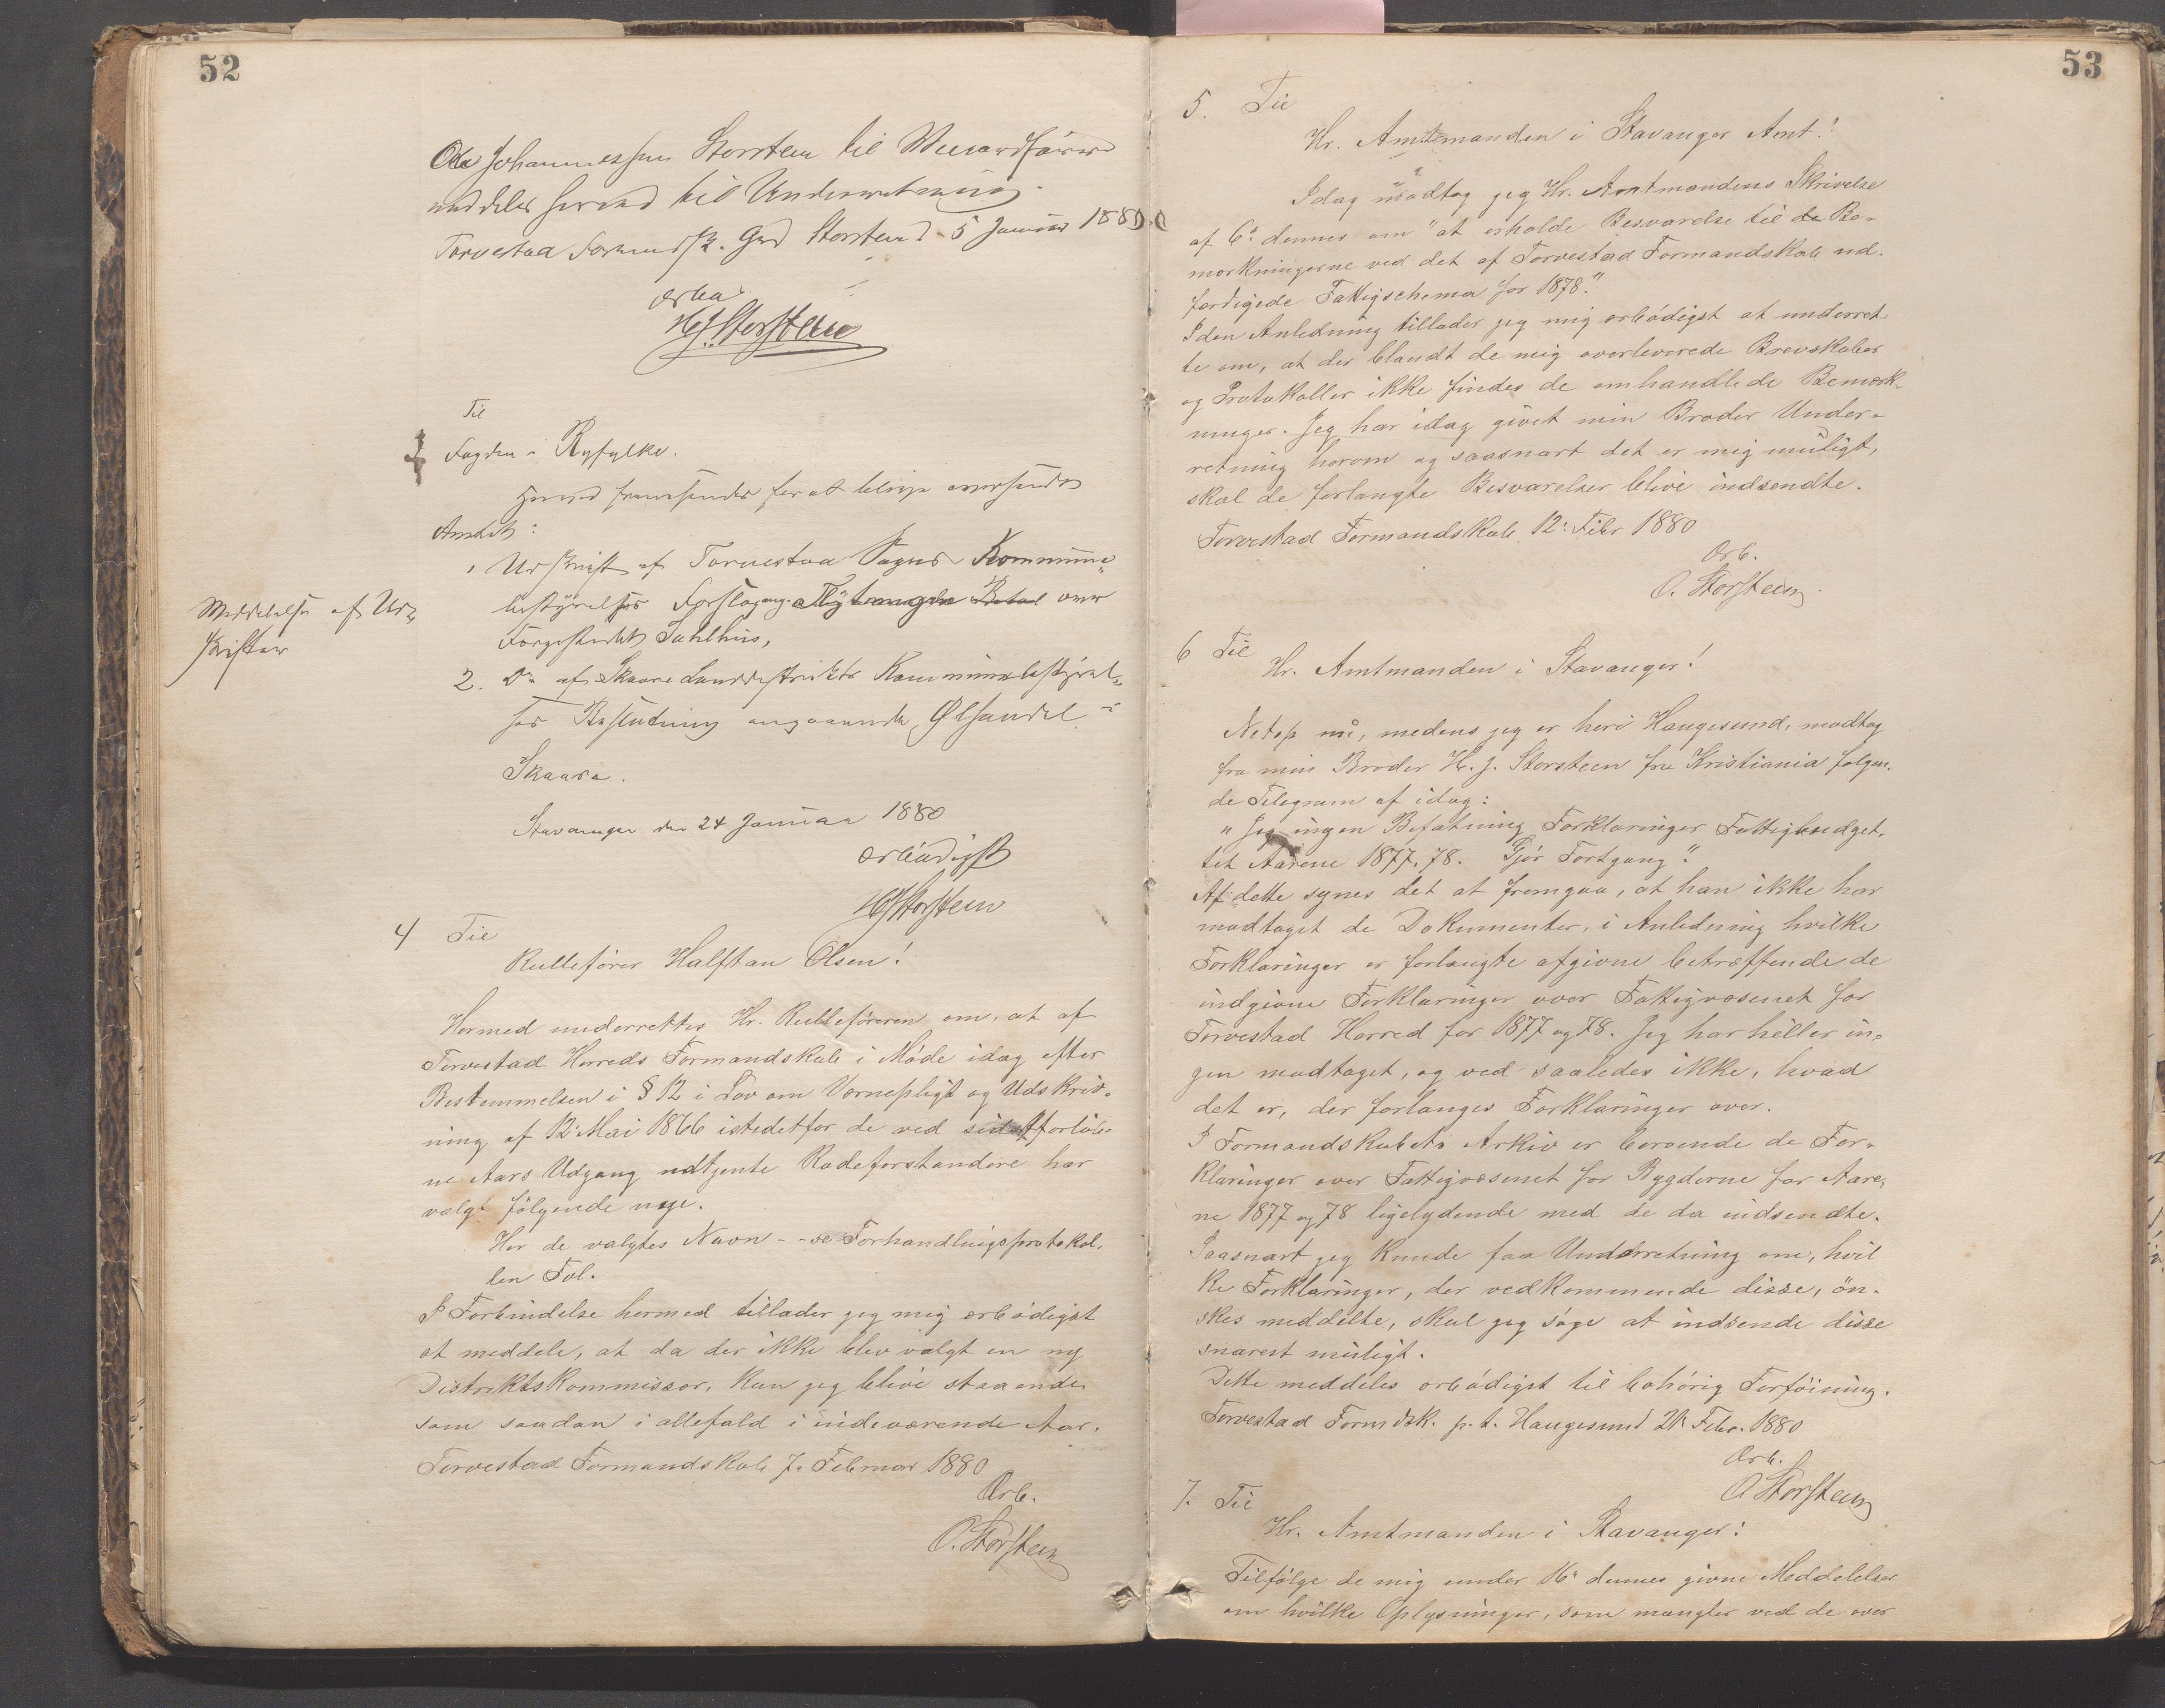 52
Ola Johannessen Storsten til
meddeles herved til Underretning.
Torvestad Formndsk. Grd Storsten d 5 Januar 1880
ærbø
HJStorsteen
Til
3 Fogden i Ryfylke.
Hermed fremsendes for at blive oversendt
Amtet:
1 Udskrift af Torvestad Sogns Kommune
Meddelelse af Ud-
skrifter
bestyrelses Forslag ang. over
2. Do af Skaare Landdistrikts Kommunebestyrel-
ses Beslutning angaaende Ølhandel i
Skaare.
Stavanger den 24 Januar 1880
ærbødigst
HJStorsteen
4 Til
Rullefører Halftan Olsen!
Hermed underrettes Hr. Rulleføreren om, at af
Torvestad Herreds Formandskab i Møde idag efter
Bestemmelsen i § 12 i Lov om Værnepligt og Udskriv-
ning af 12' Mai 1866 istedetfor de ved sidstforløb-
ne Aars Udgang udtjente Rodeforstandere har
valgt følgende nye.
Her de valgtes Navn - - se Forhandlingsprotokol-
len Fol.
I Forbindelse hermed tillader jeg mig ærbødigst
at meddele, at da der ikke blev valgt en ny
Distriktskommissær, kan jeg blive staaende
som saadan i allefald i indeværende Aar.
Torvestad Formandskab 7. Februar 1880
Ærb.
O. Storsteen
53
5. Til
Hr. Amtmanden i Stavanger Amt!
Idag modtog jeg Hr. Amtmandens Skrivelse
af 6' dennes om "at erholde Besvarelse til de Be-
mærkningerne ved det af Torvestad Formandskab ud-
færdigede Fattigschema for 1878."
I den Anledning tillader jeg mig ærbødigst at underret-
te om, at der blandt de mig overleverede Brevskaber
og Protokoller ikke findes de omhandlede Bemærk-
ninger. Jeg har idag givet min Broder Under-
retning herom og saasnart det er mig muligt,
skal de forlangte Besvarelser blive indsendte.
Torvestad Formandskab 12' Febr 1880
Ærb.
O. Storsteen
6 Til
Hr. Amtmanden i Stavanger!
Netop nu, medens jeg er heri Haugesund, modtog
fra min Broder H. J. Storsteen fra Kristiania følgen-
de Telegram af idag:
"Jeg ingen Befatning Forklaringer Fattigbudget-
tet Aarene 1877, 78. Gjør Fortgang".
Af dette synes det at fremgaa, at han ikke har
modtaget de Dokumenter, i Anledning hvilke
Forklaringer er forlangte afgivne betræffende de
indgivne Forklaringer over Fattigvæsenet for
Torvestad Herred for 1877 og 78. Jeg har heller in-
gen modtaget, og ved saaledes ikke, hvad
det er, der forlanges Forklaringer over.
I Formandskabets Arkiv er beroende de For-
klaringer over Fattigvæsenet for Bygderne for Aare-
ne 1877 og 78 ligelydende med de da indsendte.
Saasnart jeg kunde faa Underretning om, hvil
ke Forklaringer, der vedkommende disse, øn-
skes meddelte, skal jeg søge at indsende disse
snarest muligt.
Dette meddeles ærbødigst til behørig Forføining.
Torvestad Formdsk. p. t. Haugesund 21' Febr. 1880
Ærb.
O Storsteen
7. Til
Hr. Amtmanden i Stavanger!
Tilfølge de mig under 16' dennes givne Meddelelser
om hvilke Oplysninger, som mangler ved de over